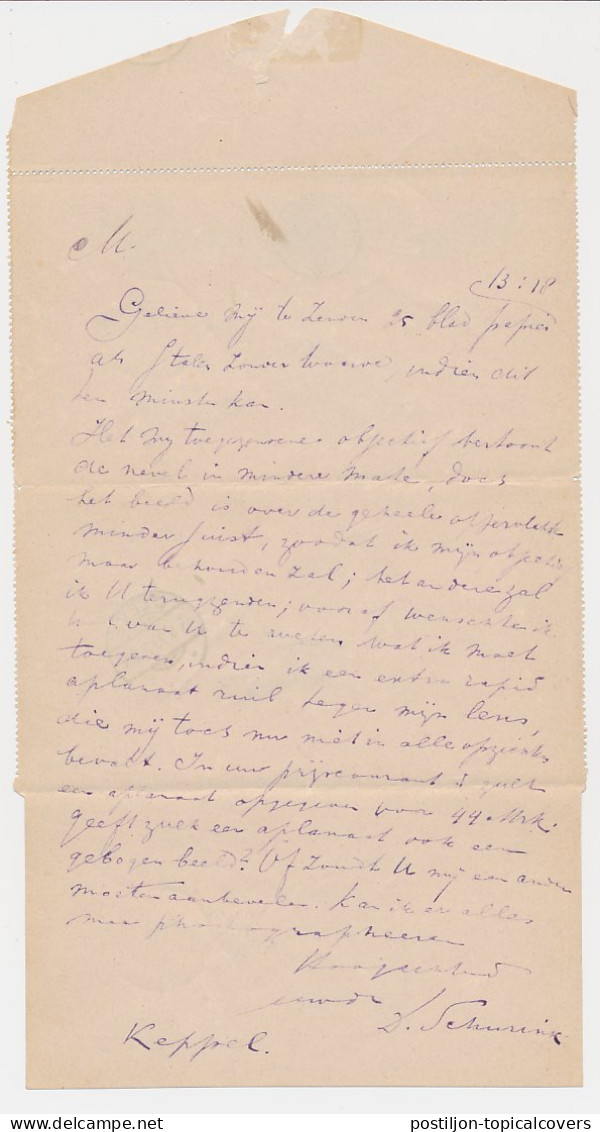 M.
13:18
Gelieve mij te zenden 25 blad papier
als staler zonder waarde, indien dit
ten minste kan.
Het mij toegezonden objectief vertoont
de nevel in mindere mate, doch
het beeld is over de geheele oppervlakte
minder juist, zoodat ik mijn objectief
maar behouden zal; het andere zal
ik U terugzenden; vooraf wenschte ik
van U te weten wat ik moet
toegeven, indien ik een extra rapid
aplanaat ruil tegen mijn lens,
die mij toch nu niet in alle opzichten
bevalt. In uw prijscourant is zulk
een aplanaat opgegeven voor 44 Mrk.
geeft zulk een aplanaat ook een
gebogen beeld? Of zoudt U mij een ander
moeten aanbevelen. Kan ik er alles
mee photographeeren
Hoogachtend
uwdr
D. Schurink
Keppel.
postiljon-topicalcovers